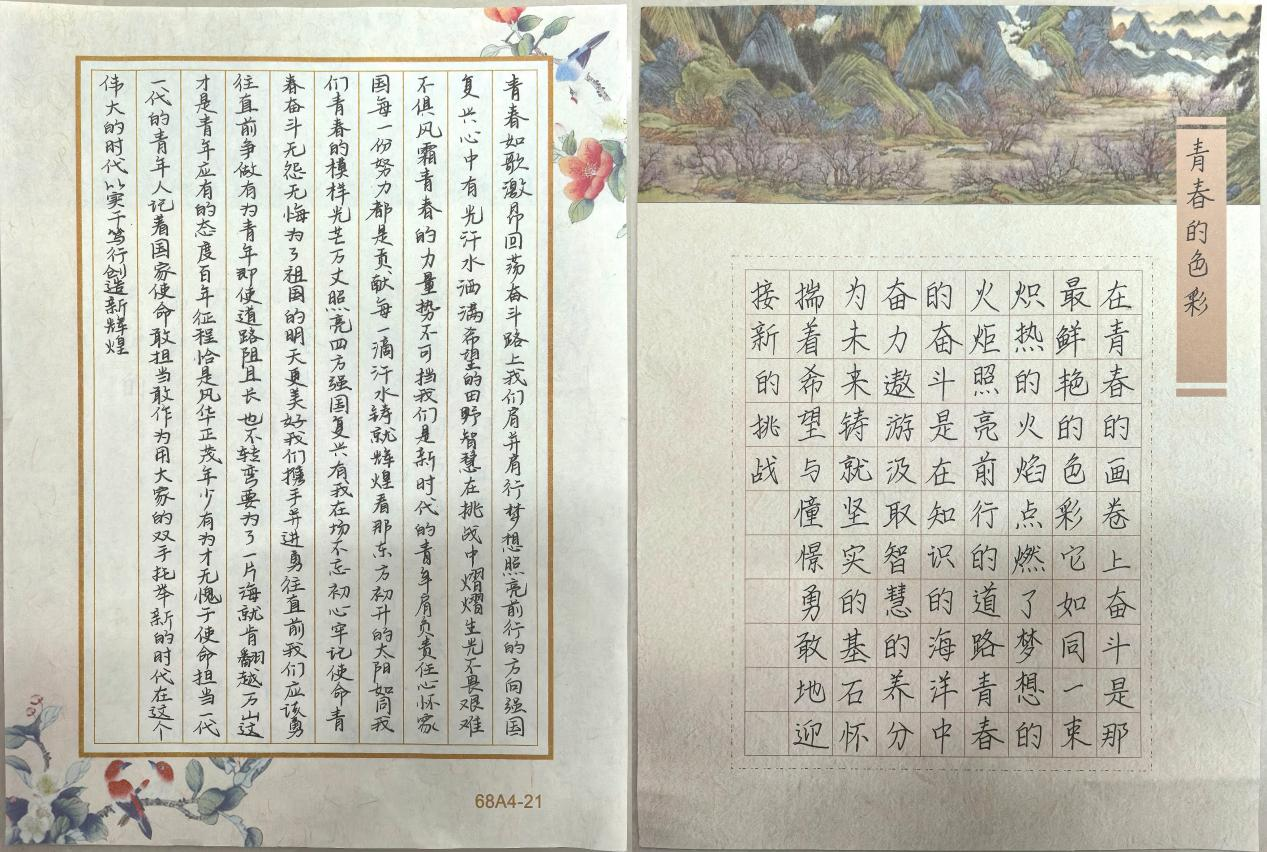 青春如歌激昂回荡奋斗路上我们肩并肩行梦想照亮前行的方向强国
复兴心中有光汗水洒满希望的田野智慧在挑战中熠熠生光不畏艰难
不俱风霜青春的力量势不可挡我们是新时代的青年肩负责任心怀家
国每一份努力都是贡献每一滴汗水铸就辉煌看那东方初升的太阳如同我
们青春的模样光芒万丈照亮四方强国复兴有我在场不忘初心牢记使命青
春奋斗无怨无悔为了祖国的明天更美好我们携手并进勇往直前我们应该勇
往直前争做有为青年即使道路阻且长也不转弯要为了一片海就肯翻越万山这
才是青年应有的态度百年征程恰是风华正茂年少有为才无愧于使命担当一代
一代的青年人记着国家使命敢担当敢作为用大家的双手托举新的时代在这个
伟大的时代以实干笃行创造新辉煌
68A4-21
青春的色彩
在青春的画卷上奋斗是那
最鲜艳的色彩它如同一束
炽热的火焰点燃了梦想的
火炬照亮前行的道路青春
的奋斗是在知识的海洋中
奋力遨游汲取智慧的养分
为未来铸就坚实的基石怀
揣着希望与憧憬勇敢地迎
接新的挑战